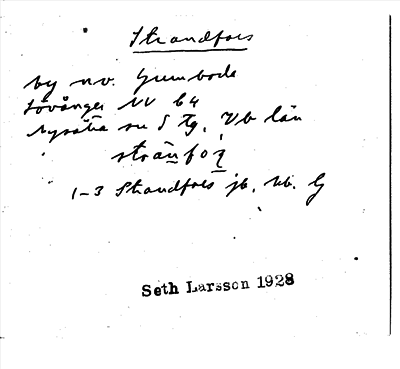 Strandfors
by nv. Gumboda
Lövånger NV 64
Nysätra sn S Tg. Vb län
1-3 Strandfors jb. kb. G
Seth Larsson 1928